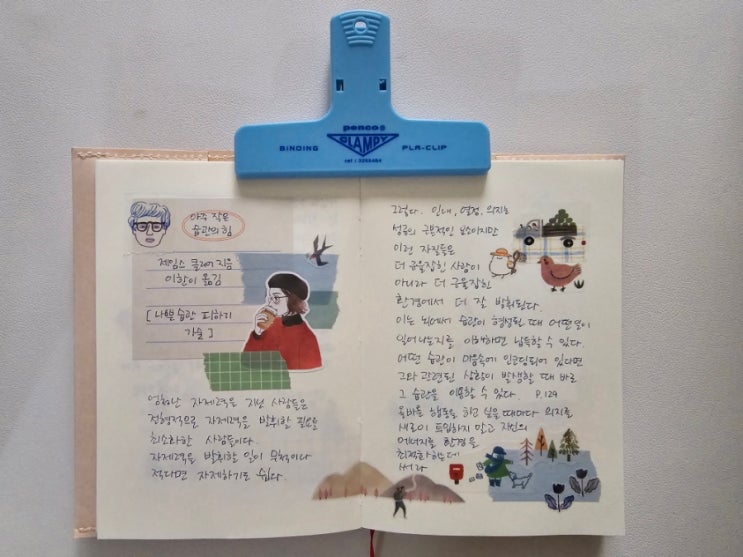 penco®
PLAMPY
BINDING
PLA-CLIP
아주 작은
습관의 힘
제임스 클리어 지음
이한이 옮김
[ 나쁜 습관 피하기
기술 ]
엄청난 자제력을 지닌 사람들은
전형적으로 자제력을 발휘할 필요를
최소화한 사람들이다.
자제력을 발휘할 일이 무척이나
적다면 자제하기도 쉽다.
그렇다. 인내, 열정, 의지는
성공의 근본적인 요소이지만
이런 자질들은
더 규율잡힌 사람이
아니라 더 규율잡힌
환경에서 더 잘 발휘된다.
이는 뇌에서 습관이 형성될 때 어떤 일이
일어나는지를 이해하면 납득할 수 있다.
어떤 습관이 마음속에 인코딩되어 있다면
그와 관련된 상황이 발생할 때 바로
그 습관을 이용할 수 있다. P.129
올바른 행동을 하고 싶을 때마다 의지를
새로이 투입하지 말고 자신의
에너지를 환경을
최적화하는데
써라